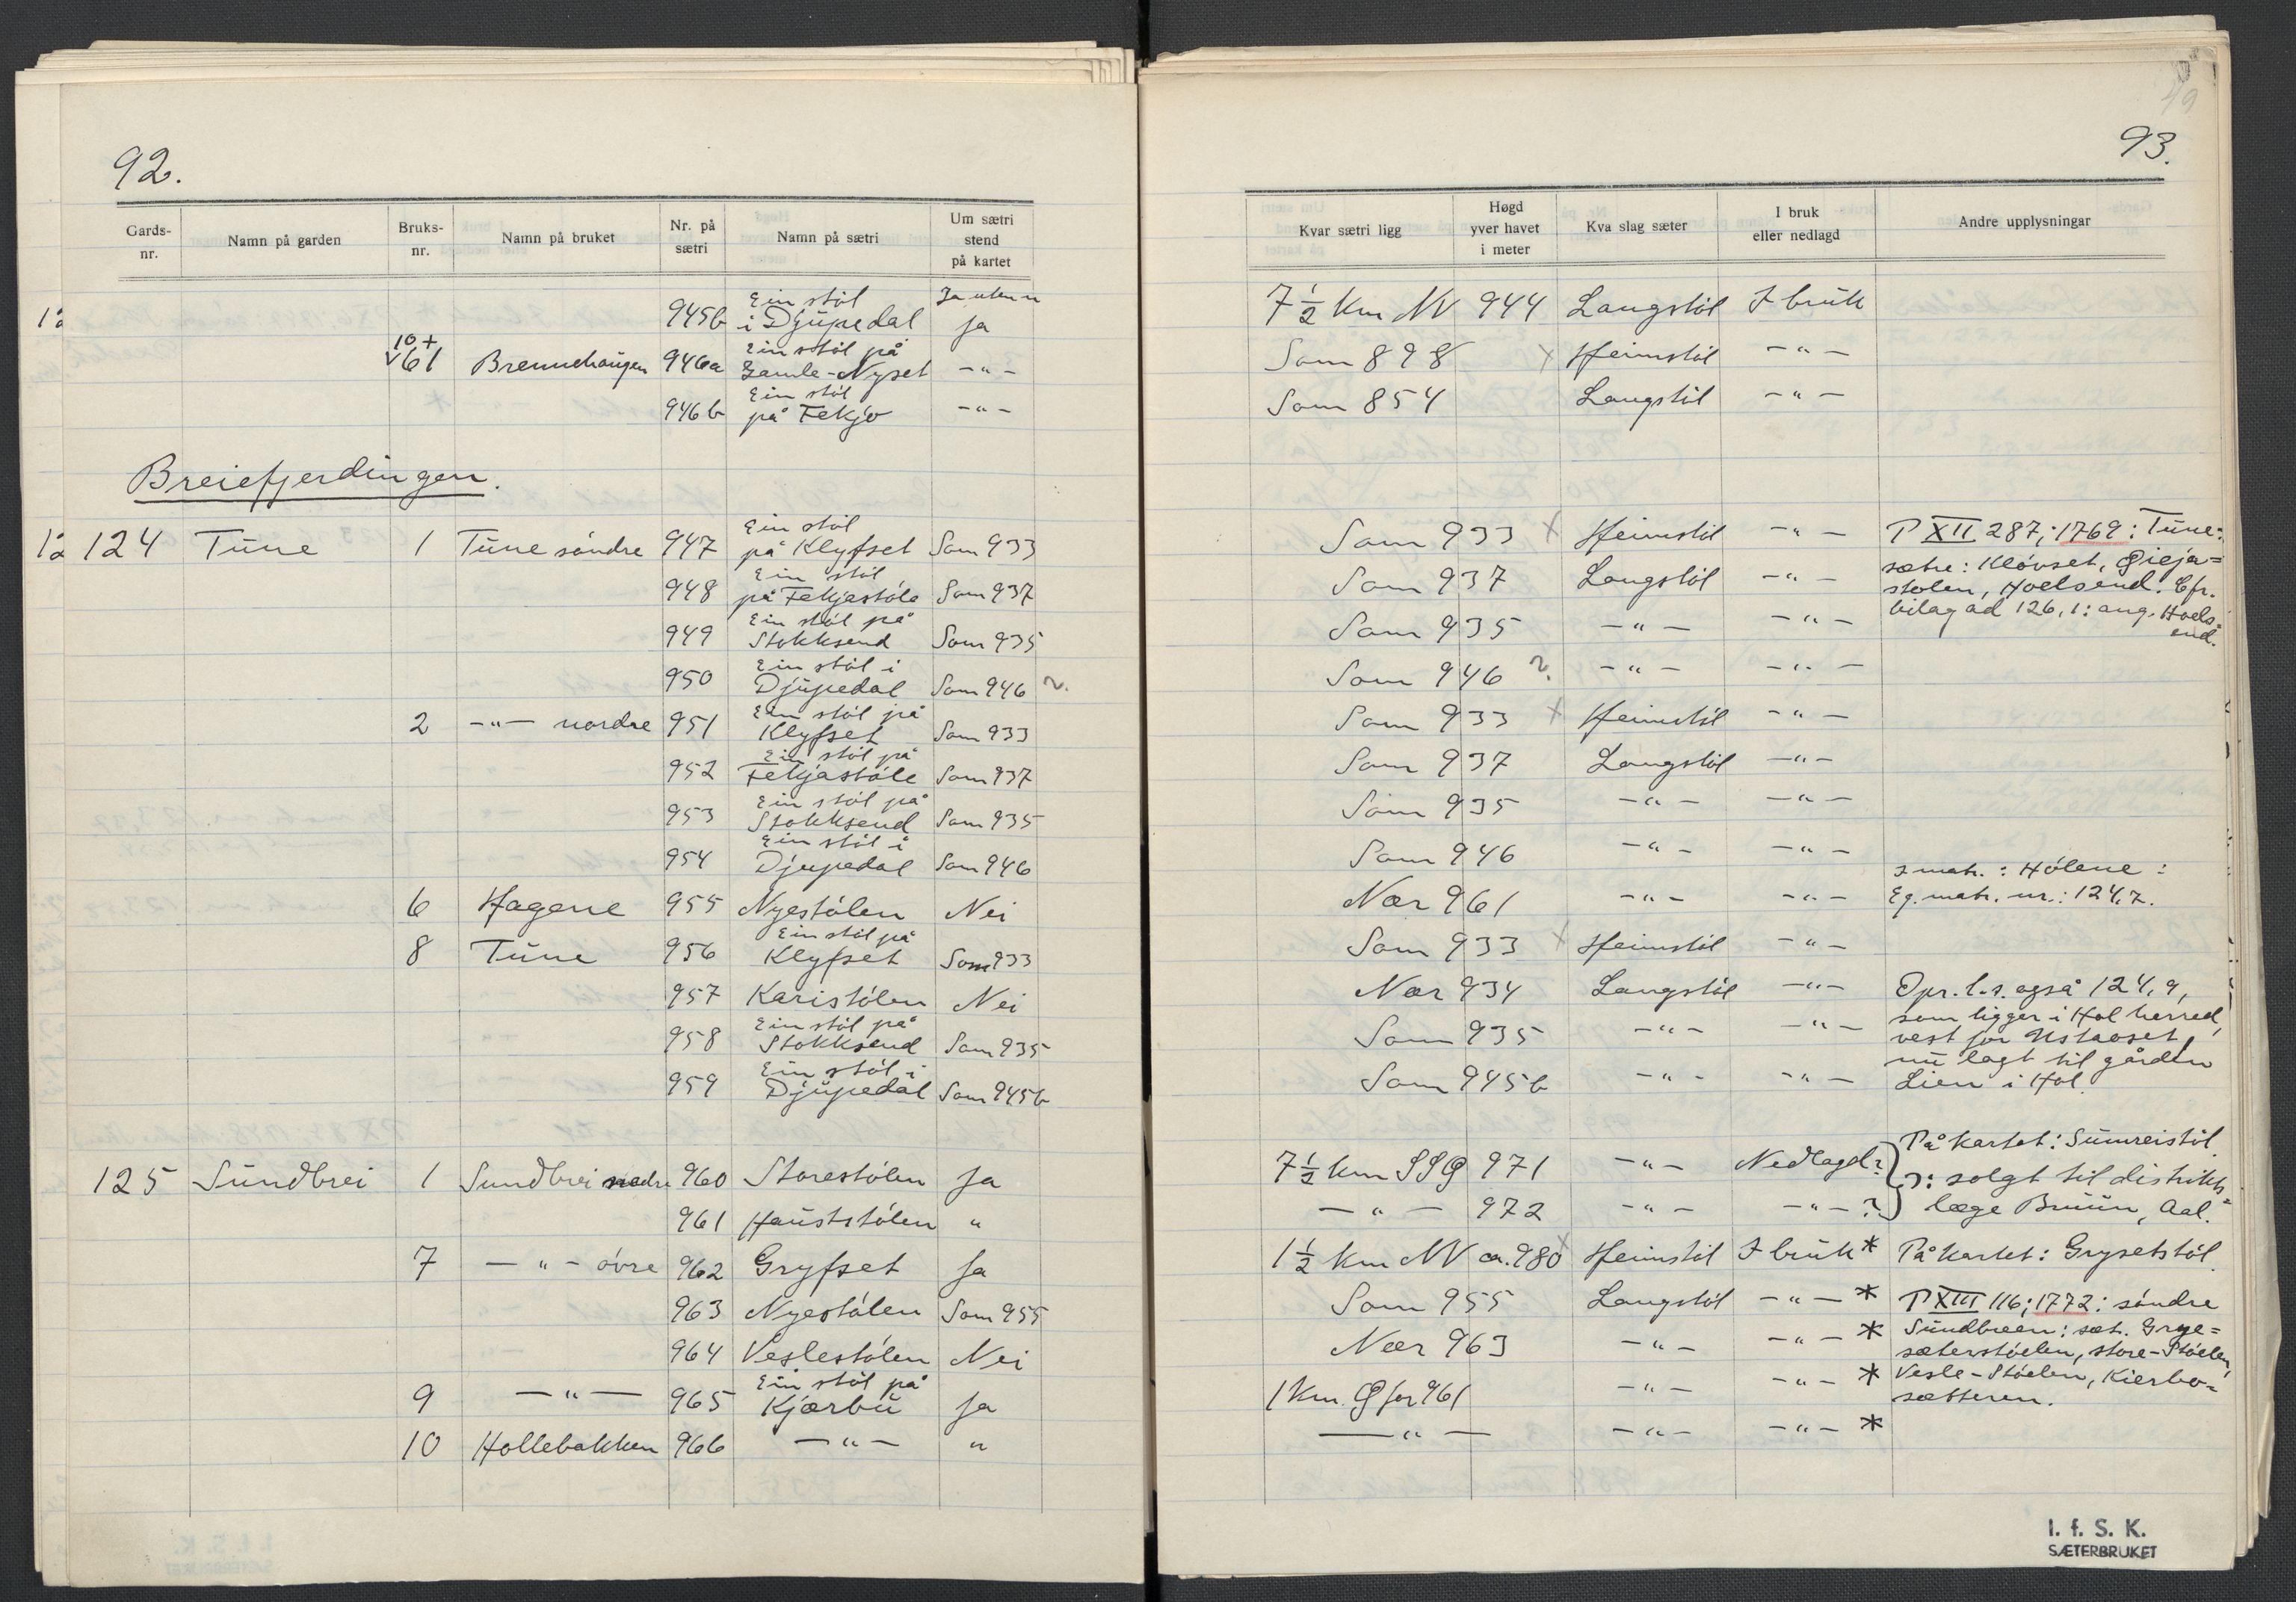 92.
Gards-nr. Namn på garden Bruks-nr. Namn på bruket Nr. på sætri Namn på sætri Um sætri stend på kartet
945b Ein stöl i Djupedal Ja
10+
v61 Brennehaugen 946a Ein stöl på Gamle-Nyset -"-
946b Ein stöl på Fekjo -"-
Breiefjerdingen.
12 124 Tune 1 Tune söndre 947 Ein stöl på Klyfset Som 933
948 Ein stöl på Fekjastöle Som 937
949 Ein stöl på Stokksend Som 935
950 Ein stöl i Djupedal Som 946 ?
2 -"- nordre 951 Ein stöl på Klyfset Som 933
952 Ein stöl på Fekjastöle Som 937
953 Ein stöl på Stokksend Som 935
954 Ein stöl i Djupedal Som 946
6 Hagene 955 Nyestölen Nei
8 Tune 956 Ein stöl på Klyfset Som 933
957 Karistölen Nei
958 Ein stöl på Stokksend Som 935
959 Ein stöl i Djupedal Som 945b
125 Sundbrei 1 Sundbrei nedre 960 Storestölen Ja
961 Hauststölen "
7 -"- övre 962 Gryfset Ja
963 Nyestölen Som 955
964 Veslestölen Nei
9 -"- 965 Ein stöl på Kjærbu Ja
10 Hollebakken 966 -"- "
93.
Kvar sætri ligg Høgd yver havet i meter Kva slag sæter I bruk eller nedlagd Andre upplysningar
7 1/2 km NV 944 Langstöl I bruk
Som 898 x Heimstöl -"-
Som 854 Langstöl -"-
Som 933 x Heimstöl -"- P XII 287; 1769: Tune:
Som 937 Langstöl -"- sætre: Klövset, Øieja=
stolen, Hoelsend. Cfr.
Som 935 -"- -"- bilag ad 126,1: ang. Hoels=
end.
Som 946 ? -"- -"-
Som 933 x Heimstöl -"-
Som 937 Langstöl -"-
Som 935 -"- -"-
Som 946 -"- -"-
s matr.: Hölene:
Nær 961 -"- -"- Eg. matr. nr.: 124,7.
Som 933 x Heimstöl -"-
Nær 934 Langstöl -"- Opr. l. s. også 124,9,
Som 935 -"- -"- som ligger i Hol herred,
vest for Ustaoset,
nu lagt til gården
Som 945b -"- -"- Lien i Hol.
På kartet: Sunreistöl.
7 1/2 km SSØ 971 -"- Nedlagd? ɔ: solgt til distrikts=
-"- 972 -"- -"-? læge Bruun, Aal.
1 1/2 km NV ca. 980 x Heimstöl I bruk * På kartet: Grysetstöl.
Som 955 Langstöl -"- * P XIII 116; 1772: söndre
Nær 963 -"- -"- * Sundbreen: sæt. Grye=
sæterstöelen, store-Stöelen,
1 km. Ø for 961 -"- -"- * Vesle-Stöelen, Kierbo=
sætteren.
-"- -"- -"- *
I. f. S. K.
SÆTERBRUKET